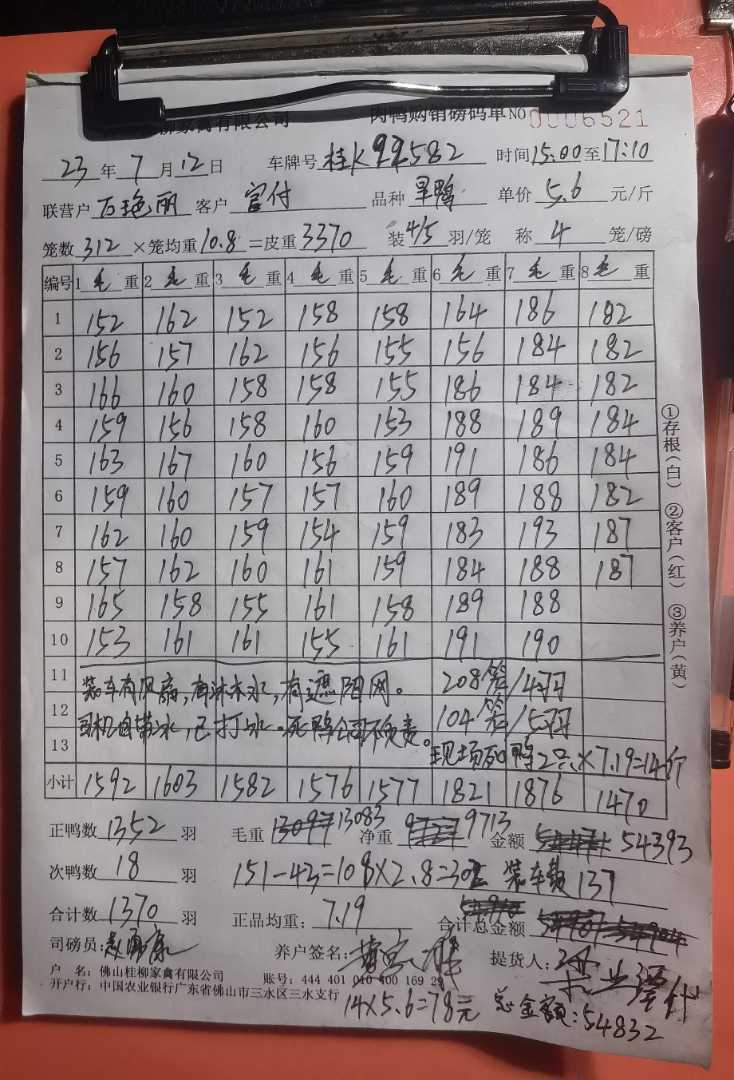 柳家禽有限公司 肉鸭购销磅码单 NO 0006521
23 年 7 月 12 日 车牌号 桂K99582 时间 15:00 至 17:10
联营户 万艳丽 客户 官付 品种 旱鸭 单价 5.6 元/斤
笼数 312 ×笼均重 10.8 =皮重 3370 装 4/5 羽/笼 称 4 笼/磅
编号 1 毛 重 2 毛 重 3 毛 重 4 毛 重 5 毛 重 6 毛 重 7 毛 重 8 毛 重
1 152 162 152 158 158 164 186 182
2 156 157 162 156 155 156 184 182
3 166 160 158 158 155 186 184 182
4 159 156 158 160 153 188 189 184
5 163 167 160 156 159 191 186 184
6 159 160 157 157 160 189 188 182
7 162 160 159 154 159 183 193 187
8 157 162 160 161 159 184 188 187
9 165 158 155 161 158 189 188
10 153 161 161 155 161 191 190
11 装车有风扇,有淋水,有遮阳网。 208笼/4羽
12 司机自带冰,已打冰。死鸭公司不负责。 104笼/5羽
13 现场死鸭2只×7.19=14斤
小计 1592 1603 1582 1576 1577 1821 1876 1470
正鸭数 1352 羽 毛重 13083 净重 9713 金额 54393
次鸭数 18 羽 151-43=108×2.8=302 装车费 137
合计数 1370 羽 正品均重: 7.19 合计总金额
司磅员: 养户签名: 提货人:
户 名: 佛山桂柳家禽有限公司 账号: 444 401 010 400 169 29
开户行: 中国农业银行广东省佛山市三水区三水支行
14×5.6=78元 总金额:54832
①存根(白) ②客户(红) ③养户(黄)